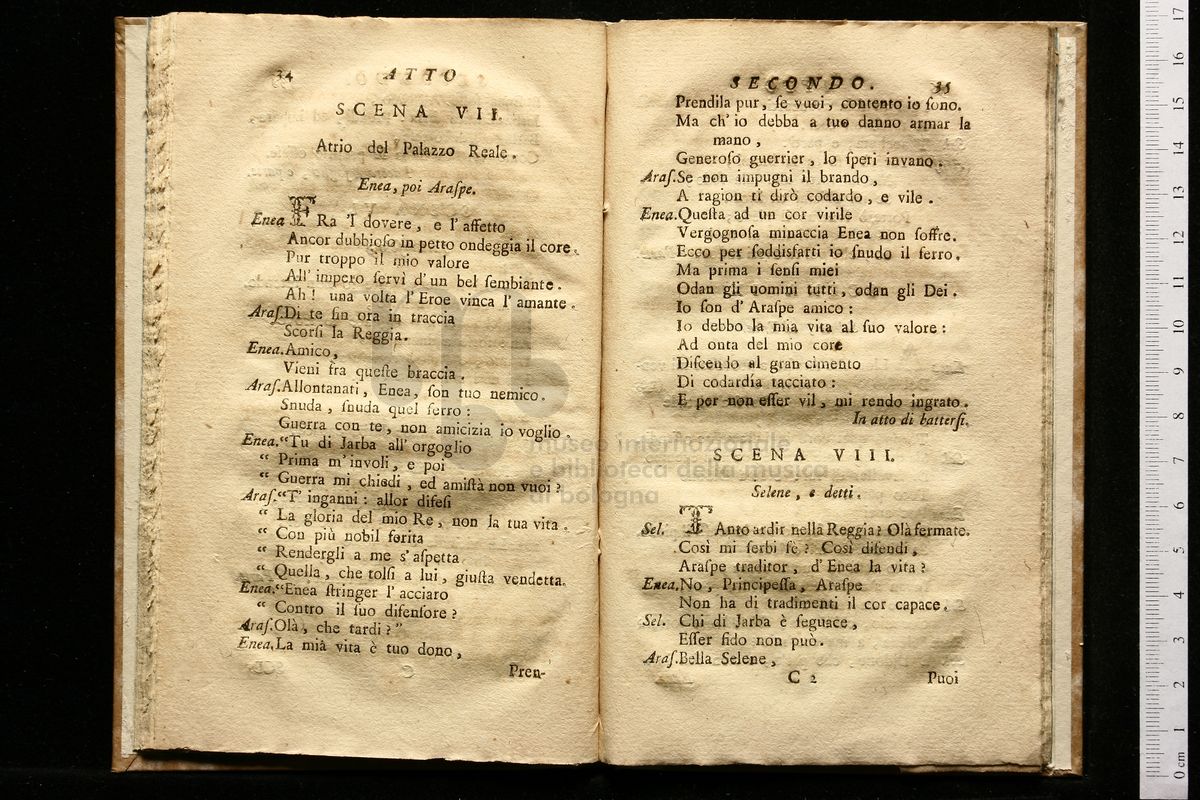 34 ATTO
SCENA VII.
Atrio del Palazzo Reale.
Enea, poi Araſpe.
Enea FRa 'l dovere, e l' affetto
Ancor dubbioſo in petto ondeggia il core.
Pur troppo il mio valore
All' impero ſervì d'un bel ſembiante.
Ah! una volta l' Eroe vinca l' amante.
Araſ. Di te ſin ora in traccia
Scorſi la Reggia.
Enea. Amico,
Vieni fra queſte braccia.
Araſ. Allontanati, Enea, ſon tuo nemico.
Snuda, ſnuda quel ferro:
Guerra con te, non amicizia io voglio.
Enea. “Tu di Jarba all' orgoglio
“ Prima m'involi, e poi
“ Guerra mi chiedi, ed amiſtà non vuoi?
Araſ. “T' inganni: allor difeſi
“ La gloria del mio Re, non la tua vita.
“ Con più nobil ferita
“ Rendergli a me s' aſpetta
“ Quella, che tolſi a lui, giuſta vendetta.
Enea. “Enea ſtringer l' acciaro
“ Contro il ſuo difenſore?
Araſ. Olà, che tardi?”
Enea. La mià vita è tuo dono,
Pren-
SECONDO. 35
Prendila pur, ſe vuoi, contento io ſono.
Ma ch' io debba a tuo danno armar la
mano,
Generoſo guerrier, lo ſperi invano.
Araſ. Se non impugni il brando,
A ragion ti dirò codardo, e vile.
Enea. Queſta ad un cor virile
Vergognoſa minaccia Enea non ſoffre.
Ecco per ſoddisfarti io ſnudo il ferro.
Ma prima i ſenſi miei
Odan gli uomini tutti, odan gli Dei.
Io ſon d' Araſpe amico:
Io debbo la mia vita al ſuo valore:
Ad onta del mio core
Diſcendo al gran cimento
Di codardía tacciato:
E per non eſſer vil, mi rendo ingrato.
In atto di batterſi.
SCENA VIII.
Selene, e detti.
Sel. TAnto ardir nella Reggia? Olà fermate.
Così mi ſerbi fè? Così difendi,
Araſpe traditor, d' Enea la vita?
Enea. No, Principeſſa, Araſpe
Non ha di tradimenti il cor capace.
Sel. Chi di Jarba è ſeguace,
Eſſer fido non può.
Araſ. Bella Selene,
C 2 Puoi
museo internazionale
e biblioteca della musica
di bologna
0 cm 1 2 3 4 5 6 7 8 9 10 11 12 13 14 15 16 17